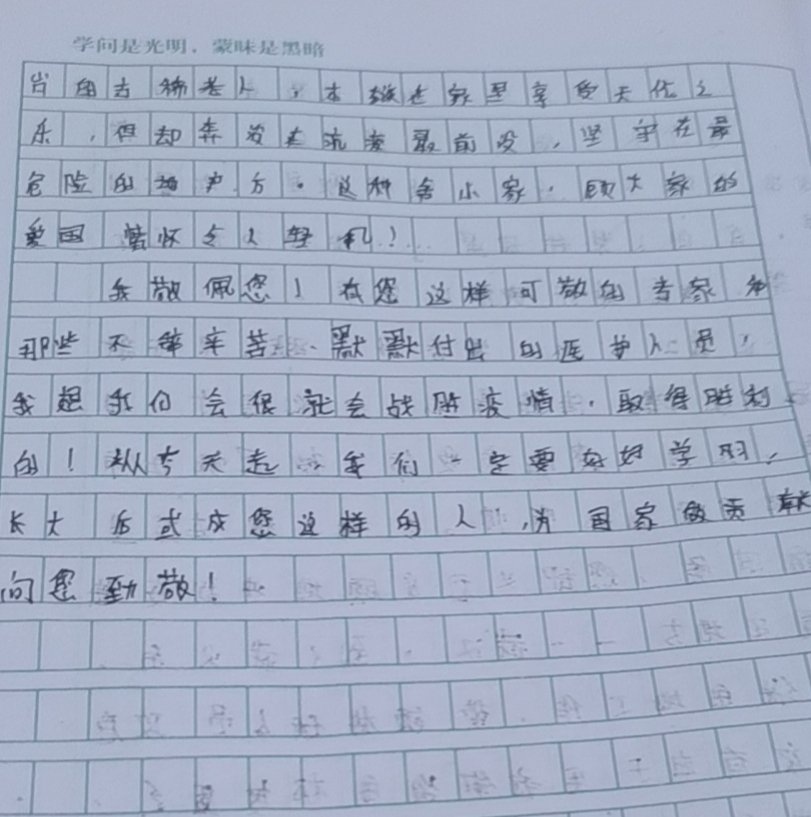 学问是光明，蒙昧是黑暗
岁的古稀老人，本该在家里享受天伦之
乐，但却奔波在抗疫最前沒，坚守在最
危险的地方。这种舍小家，顾大家的
爱国情怀令人敬礼！
我敬佩您！有您这样可敬的专家和
那些不辞辛苦、默默付出的医护人员，
我想我们会很就会战胜疫情，取得胜利
的！从今天起，我们一定要好好学习，
长大后式成您这样的人，为国家做贡献
向您致敬！